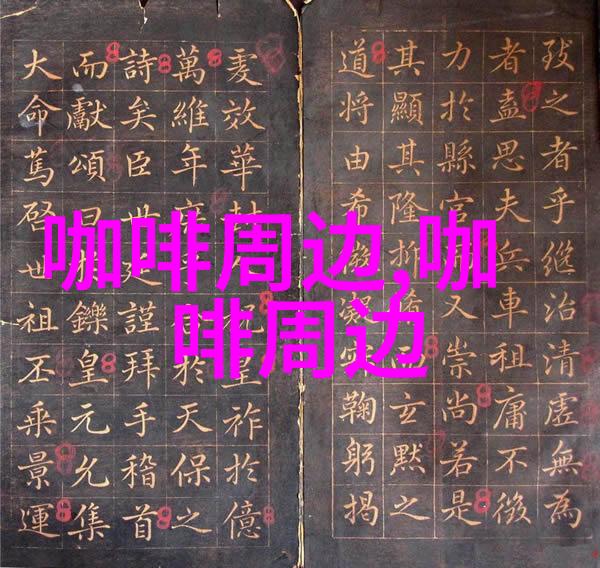 咖啡周边,咖
啡周边
之者乎继治清虛無為
者盍思夫兵車租庸不徵
力於縣官又崇尚若是
其顯其隆肴玄默之
道將由希凝鞠躬揭
效華封祝皇祚於億
萬維年於天保之
詩矣臣世謹拜手稽首
而獻頌曰於鑠皇元允集
大命篤啓世祖丕乘景運